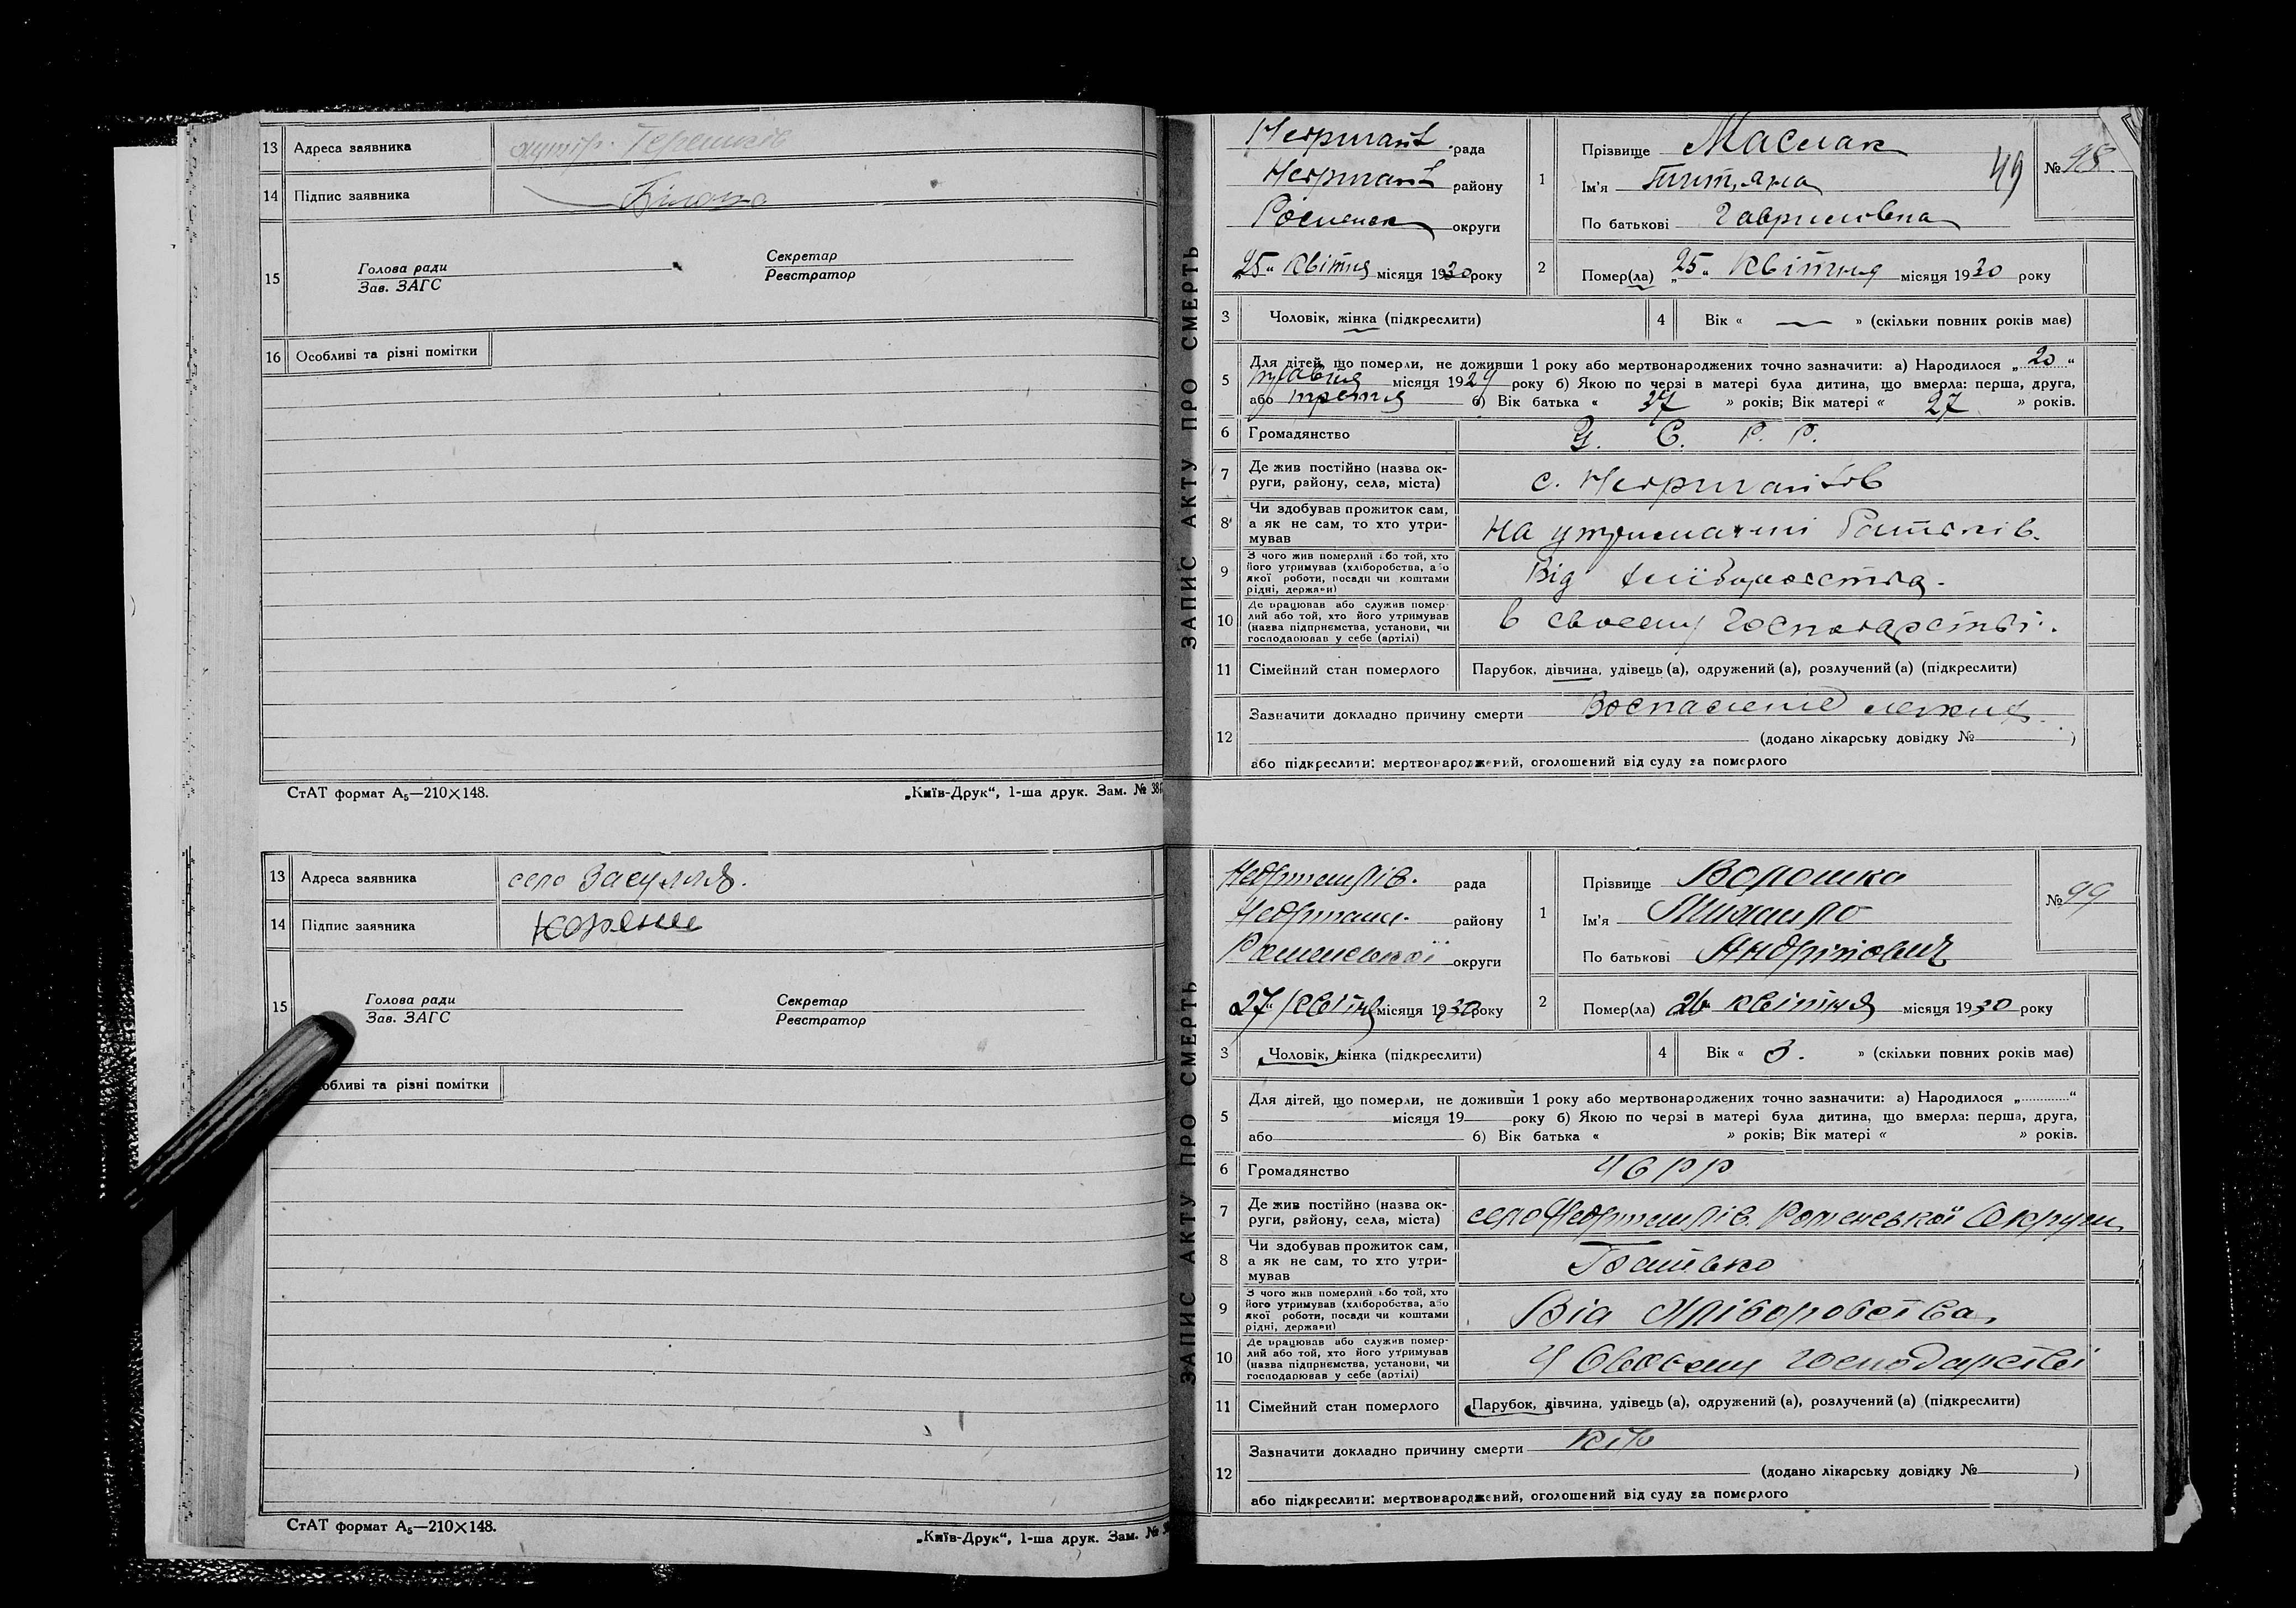 13 Адреса заявника
14 Підпис заявника
15 Голова ради
Зав. ЗАГС
Секретар
Реєстратор
16 Особливі та різні помітки
СтАТ формат А5—210×148.
„Київ-Друк“, 1-ша друк. Зам. №
13 Адреса заявника село Засулля.
14 Підпис заявника
15 Голова ради
Зав. ЗАГС
Секретар
Реєстратор
обливі та різні помітки
СтАТ формат А5—210×148.
„Київ-Друк“, 1-ша друк. Зам. №
ЗАПИС АКТУ ПРО СМЕРТЬ
рада
району
округи
„25“ Квітня місяця 1930 року
1 Прізвище Маслак
Ім'я Титяна
По батькові Гавриловна
49
№ 98
2 Помер(ла) „25“ Квітня місяця 1930 року
3 Чоловік, жінка (підкреслити)
4 Вік « — » (скільки повних років має)
5 Для дітей, що померли, не доживши 1 року або мертвонароджених точно зазначити: а) Народилося „20“
травня місяця 1929 року б) Якою по черзі в матері була дитина, що вмерла: перша, друга,
або третя б) Вік батька « 37 » років; Вік матері « 27 » років.
6 Громадянство У. С. Р. Р.
7 Де жив постійно (назва округи, району, села, міста) с. Недригайлов
8 Чи здобував прожиток сам,
а як не сам, то хто утри-
мував на утриманні батьків.
9 З чого жив померлий або той, хто
його утримував (хліборобства, або
якої роботи, посади чи коштами
рідні, держави) Від хліборобства.
10 Де працював або служив помер-
лий або той, хто його утримував
(назва підприємства, установи, чи
господарював у себе (артілі) в своему господарстві.
11 Сімейний стан померлого Парубок, дівчина, удівець (а), одружений (а), розлучений (а) (підкреслити)
12 Зазначити докладно причину смерти Воспаление легких.
(додано лікарську довідку № )
або підкреслити: мертвонароджений, оголошений від суду за померлого
ЗАПИС АКТУ ПРО СМЕРТЬ
Недригайлів. рада
Недригайл. району
Роменської округи
27 Квітня місяця 1930 року
1 Прізвище Волошко
Ім'я Михайло
По батькові Андрійович
№ 99
2 Помер(ла) 26 квітня місяця 1930 року
3 Чоловік, жінка (підкреслити)
4 Вік « 3. » (скільки повних років має)
5 Для дітей, що померли, не доживши 1 року або мертвонароджених точно зазначити: а) Народилося „ “
місяця 19 року б) Якою по черзі в матері була дитина, що вмерла: перша, друга,
або б) Вік батька « » років; Вік матері « » років.
6 Громадянство УСРР
7 Де жив постійно (назва ок-
руги, району, села, міста) село Недригайлів Роменської Округи
8 Чи здобував прожиток сам,
а як не сам, то хто утри-
мував Батько
9 З чого жив померлий або той, хто
його утримував (хліборобства, або
якої роботи, посади чи коштами
рідні, держави) Від Хліборобства
10 Де працював або служив помер-
лий або той, хто його утримував
(назва підприємства, установи, чи
господарював у себе (артілі) У Своєму господарстві
11 Сімейний стан померлого Парубок, дівчина, удівець (а), одружений (а), розлучений (а) (підкреслити)
12 Зазначити докладно причину смерти Кір
(додано лікарську довідку № )
або підкреслити: мертвонароджений, оголошений від суду за померлого